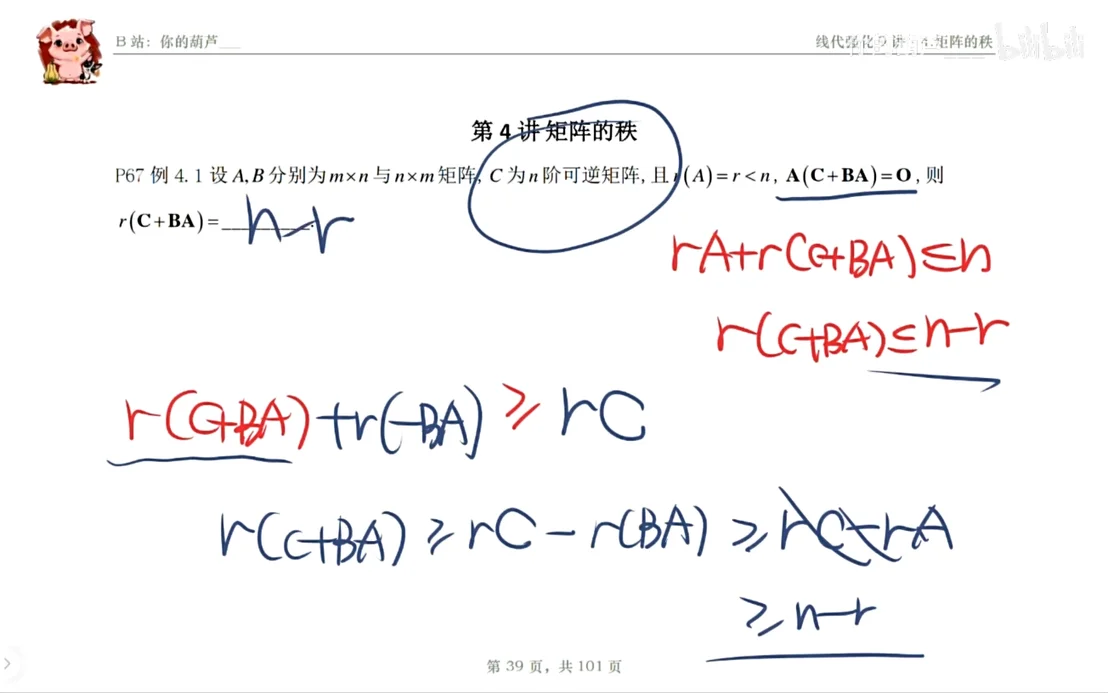 B 站：你的葫芦___
bilibili
第 4 讲 矩阵的秩
P67 例 4.1 设 A,B 分别为 m×n 与 n×m 矩阵, C 为 n 阶可逆矩阵, 且 r(A)=r<n, A(C+BA)=O, 则
r(C+BA)=________. n-r
rA+r(C+BA)≤n
r(C+BA)≤n-r
r(C+BA)+r(-BA)≥rC
r(C+BA)≥rC-r(BA)≥rC-rA
≥n-r
第 39 页，共 101 页